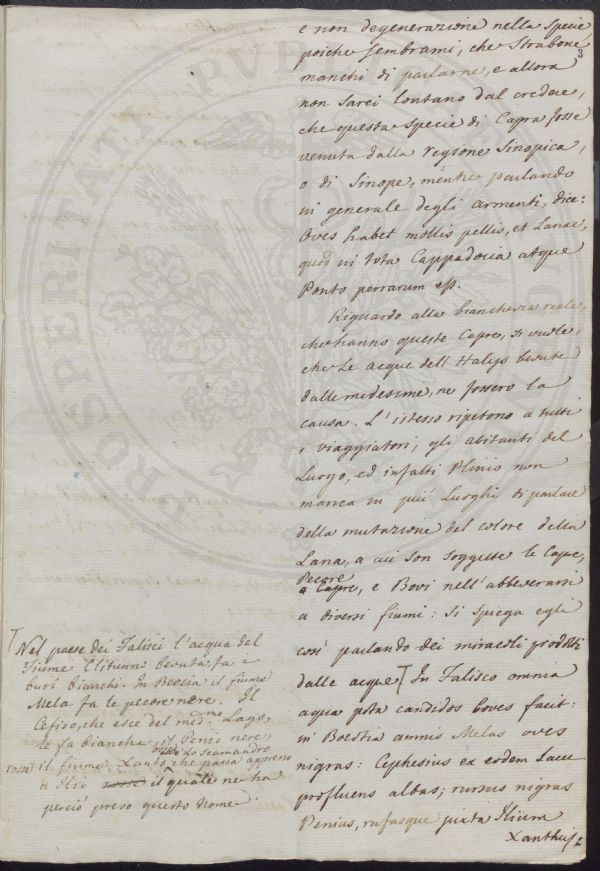 3
e non degenerazione nella specie,
poiche sembrami, che Strabone
manchi di parlarne, e allora
non sarei lontano dal credere,
che questa specie di Capra fosse
venuta dalla regione Sinopica,
o di Sinope, mentre parlando
in generale degli armenti, dice:
Oves habet mollis pellis, et Lanae,
quod in tota Cappadocia atque
Ponto perrarum est.
Riguardo alla bianchezza reale,
che hanno queste Capre, si vuole,
che Le acque dell'Halys bevute
dalle medesime, ne fossero la
causa. L'istesso ripetono a tutti
i viaggiatori, gli abitanti del
Luogo, ed infatti Plinio non
manca in più Luoghi di parlare
della mutazione del colore della
Lana, a cui son soggette le Capre,
Pecore
a Capre, e Bovi nell'abbeverarsi
a diversi fiumi: Si spiega egli
così parlando dei miracoli prodotti
dalle acque. In Falisco omnia
aqua pota candidos boves facit:
in Boeotia amnis Melas oves
nigras: Cephesius ex eodem Lacu
profluens albas; rursus nigras
Penius, rufasque juxta Ilium
Xanthus:
Nel paese dei Falisci l'acqua del
Fiume Clitunno bevuta, fa i
buoi bianchi. In Beozia il fiume
Mela fa le pecore nere. Il
Cefiso, che esce del med.mo Lago,
le fa bianche, il Penio nere,
rosse il fiume Xanto, che passa appresso
o sia Lo Scamandro
a Ilio il quale ne ha
perciò preso questo nome.